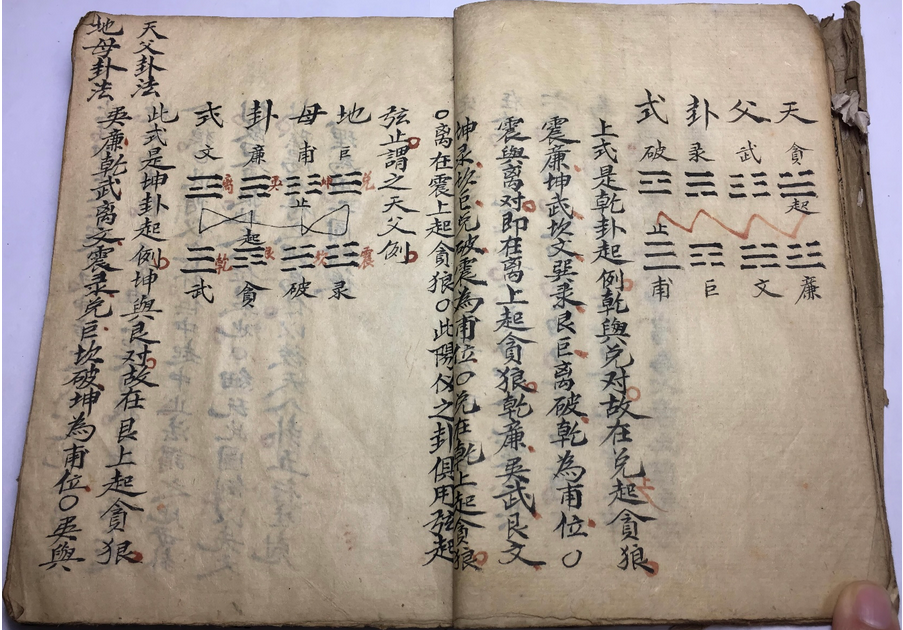 天父卦式
貪武彔破
起
止
廉文巨甫
上式是乾卦起例乾與兑对故在兑起貪狼
震廉坤武坎文巽彔艮巨离破乾為甫位〇
震與离对即在离上起貪狼乾廉巽武艮文
坤彔坎巨兑破震為甫位〇兑在乾上起貪狼
〇离在震上起貪狼〇此陽仪之卦俱用弦起
弦止謂之天父例
地母卦式
巨甫廉文
兑坤巽离
止
起
震坎艮乾
彔破貪武
此式是坤卦起例坤與艮对故在艮上起貪狼
巽廉乾武离文震彔兑巨坎破坤為甫位〇巽與
天父卦法
地母卦法